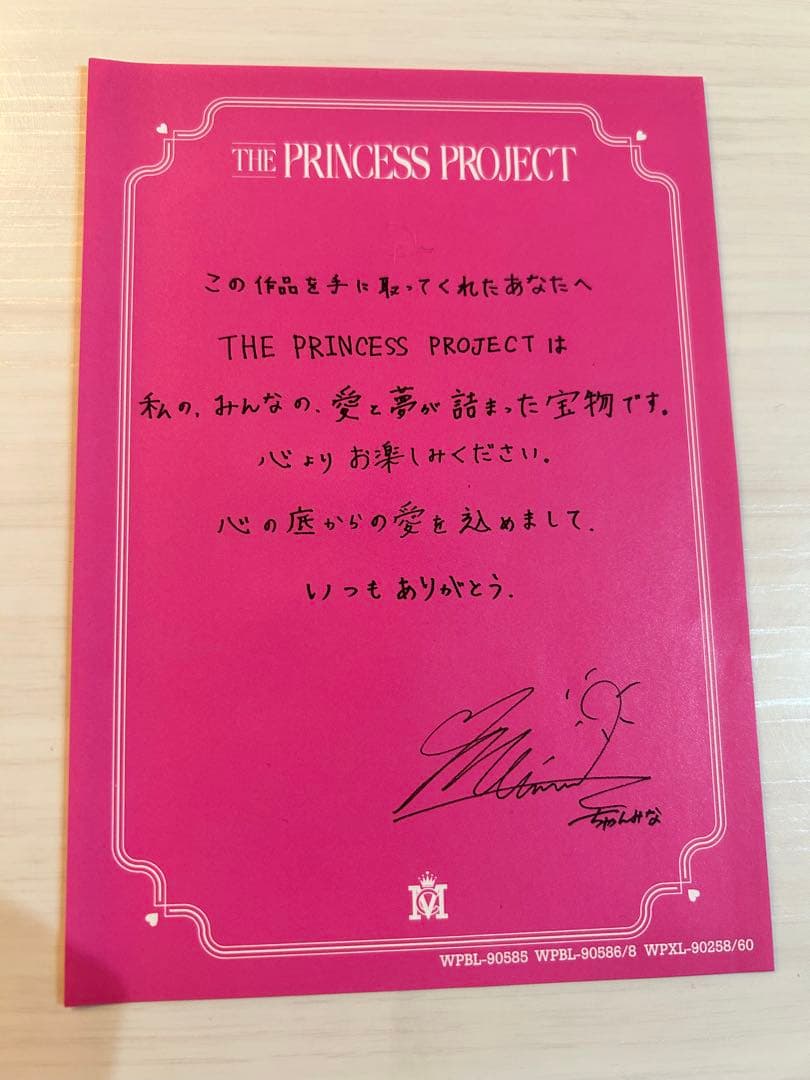 THE PRINCESS PROJECT
この作品を手に取ってくれたあなたへ
THE PRINCESS PROJECTは
私の、みんなの、愛と夢が詰まった宝物です。
心よりお楽しみください。
心の底からの愛を込めまして、
いつもありがとう、
ちゃんみな
WPBL-90585 WPBL-90586/8 WPXL-90258/60